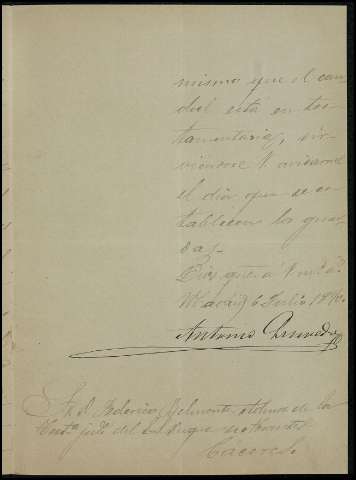 mismo que el cau-
dal está en tes-
tamentaria, sir-
viendose V. avisarme
el dia que se es-
tablecen los guar-
das.
Dios gue. á V. m. a.
Madrid 6 Julio
Antonio
Sr. D. Federico Belmonte
del Duque
Cáceres.